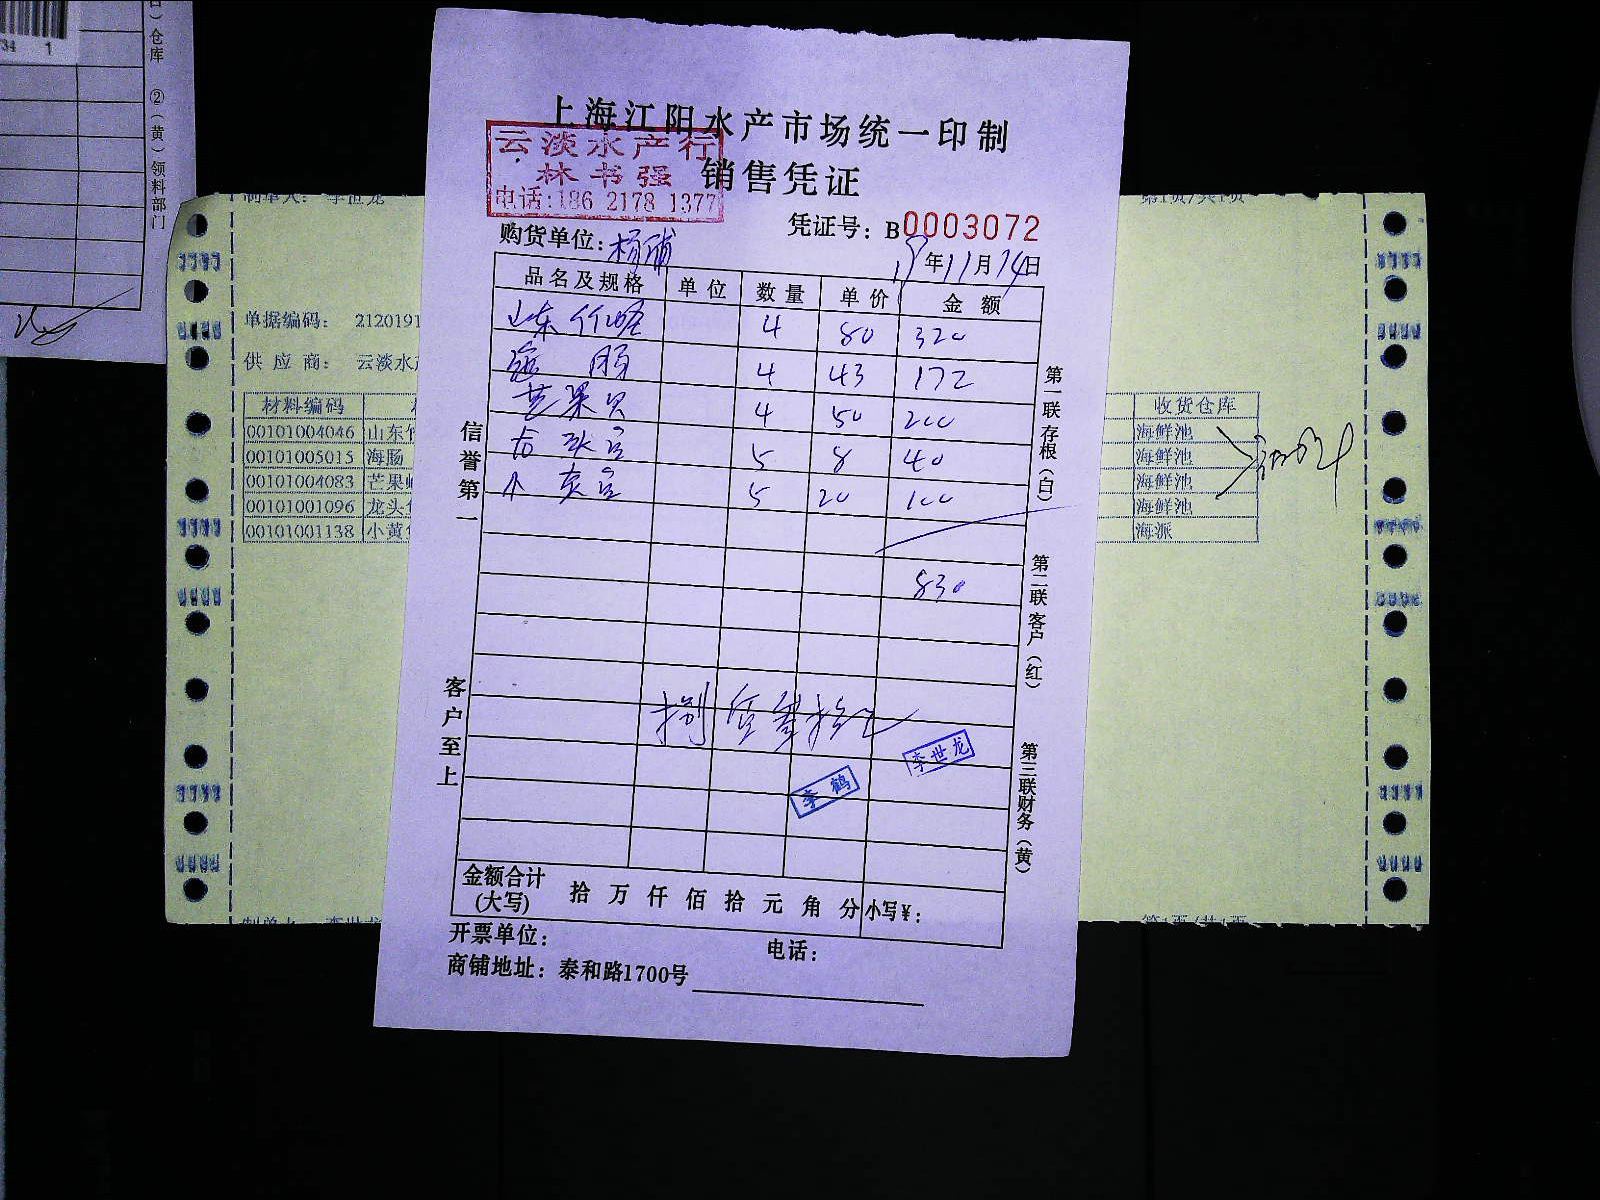 34 1
仓库 ②(黄)领料部门
上海江阳水产市场统一印制
云淡水产行
林书强
电话:186 2178 1377
销售凭证
凭证号: B0003072
购货单位:
年11月14日
品名及规格 单位 数量 单价 金额
山东竹蛏 4 80 320
海肠 4 43 172
芒果贝 4 50 200
龙头鱼 5 8 40
小黄鱼 5 20 100
830
捌佰叁拾元
李世龙
李鹤
金额合计(大写) 拾 万 仟 佰 拾 元 角 分 小写¥:
开票单位: 电话:
商铺地址: 泰和路1700号
信誉第一
客户至上
第一联 存根(白)
第二联 客户(红)
第三联 财务(黄)
制单人: 李世龙
第1页/共1页
单据编码: 2120191
供应商: 云淡水
材料编码 收货仓库
00101004046 山东 海鲜池
00101005015 海肠 海鲜池
00101004083 芒果 海鲜池
00101001096 龙头 海鲜池
00101001138 小黄 海派
制单人 李世龙
第1页/共1页